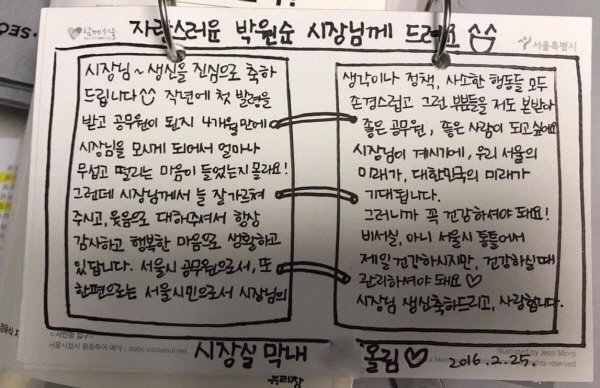 함께서울
서울특별시
자랑스러운 박원순 시장님께 드려요
시장님~ 생신을 진심으로 축하
드립니다 작년에 첫 발령을
받고 공무원이 된지 4개월만에
시장님을 모시게 되어서 얼마나
무섭고 떨리는 마음이 들었는지 몰라요!
그런데 시장님께서 늘 잘 가르쳐
주시고, 웃음으로 대해주셔서 항상
감사하고 행복한 마음으로 생활하고
있답니다. 서울시 공무원으로서, 또
한편으로는 서울시민으로서 시장님의
생각이나 정책, 사소한 행동들 모두
존경스럽고 그런 부분들을 저도 본받아
좋은 공무원, 좋은 사람이 되고싶어요
시장님이 계시기에, 우리 서울의
미래가, 대한민국의 미래가
기대됩니다.
그러니까 꼭 건강하셔야 돼요!
비서실, 아니 서울시 통틀어서
제일 건강하시지만, 건강하실때
관리하셔야 돼요♡
시장님 생신축하드리고, 사랑합니다.
시장실 막내 올림♡ 2016.2.25.
유리창